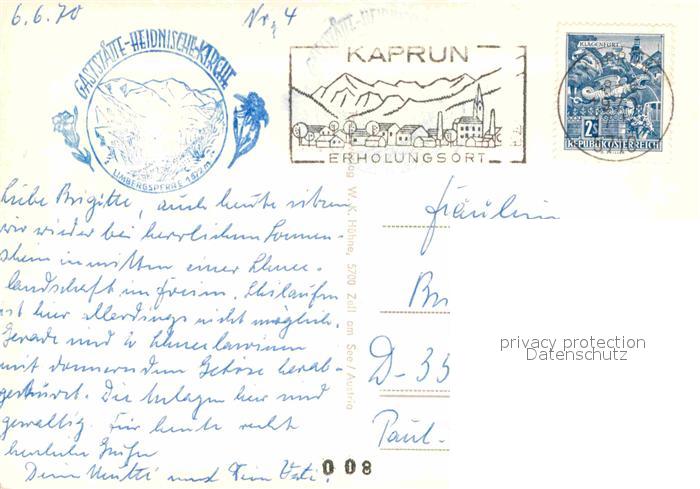 6.6.70
Nr. 4
GASTSTÄTTE-HEIDNISCHE-KIRCHE
LIMBERGSPERRE 1672m
KAPRUN
ERHOLUNGSORT
KLAGENFURT
2S
REPUBLIK ÖSTERREICH
Liebe Brigitte, auch heute sitzen
wir wieder bei herrlichem Sonnen-
schein inmitten einer Schnee-
landschaft im Freien. Skilaufen
ist hier allerdings nicht möglich.
Gerade sind 2 Schneelawinen
mit donnerndem Getöse herab-
gestürzt. Die Anlagen hier sind
gewaltig. Für heute recht
herzliche Grüße
Deine Mutti und Dein Vati.
W. K. Höhne, 5700 Zell am See / Austria
Fräulein
D-35
Paul-
privacy protection
Datenschutz
008